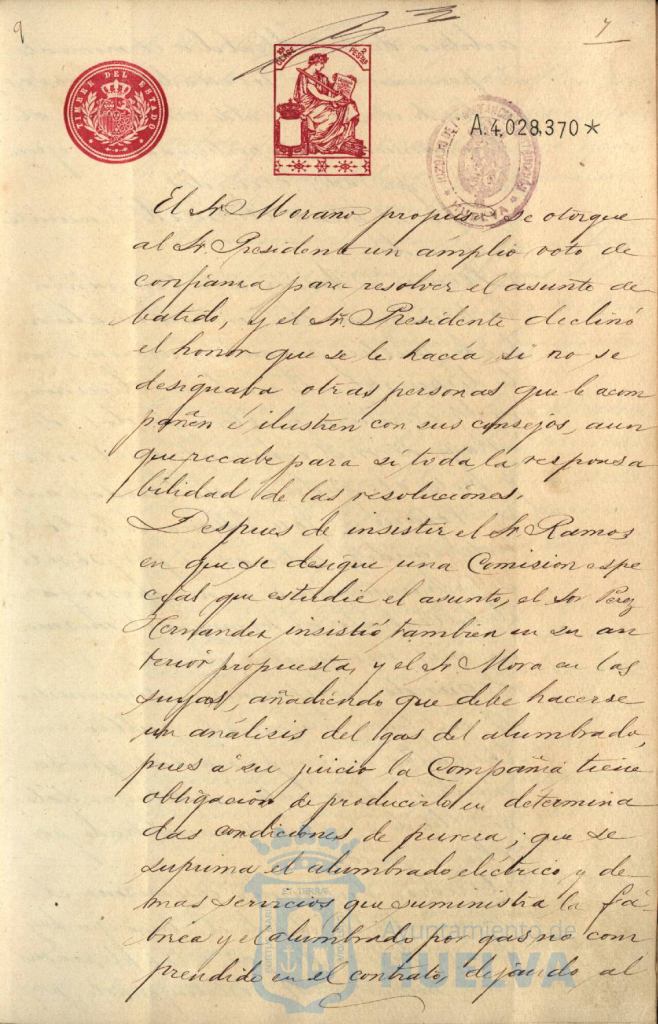 9
7
TIMBRE DEL ESTADO
CLASE
2 PESETAS
A.4,028,370*
HUELVA
El Sr Morano propuso se otorgue
al Sr. Presidente un ámplio voto de
confianza para resolver el asunto de
batido, y el Sr. Presidente declinó
el honor que se le hacía si no se
designava otras personas que le acom
pañen é ilustren con sus consejos, aun
que recabe para sí, toda la responsa
bilidad de las resoluciones.
Despues de insistir el Sr. Ramos
en que se desigue una Comision espe
cial que estudie el asunto, el Sor Perez
Hernandez, insistió tambien en su an
terior propuesta, y el Sr Mora en las
suyas, añadiendo que debe hacerse
un análisis del gas del alumbrado,
pues á su juicio la Compañia tiene
obligacion de producirlo en determina
das condiciones de pureza; que se
suprima el alumbrado eléctrico y de
mas servicios que suministra la fá-
brica y el alumbrado por gas no com
prendido en el contrato, dejando al
Ayuntamiento de
HUELVA